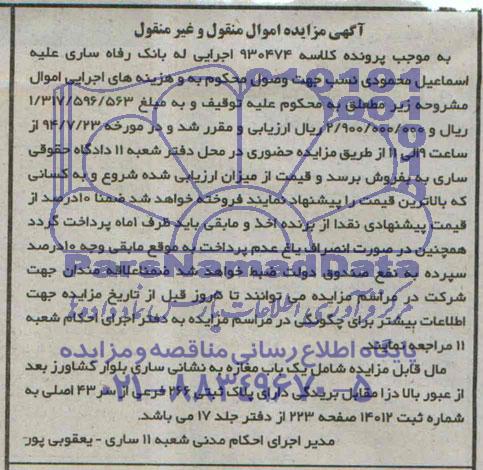 آگهی مزایده اموال منقول و غیر منقول
به موجب پرونده کلاسه ۹۳۰۴۷۴ اجرایی له بانک رفاه ساری علیه
اسماعیل محمودی نسب جهت وصول محکوم به و هزینه های اجرایی اموال
مشروحه زیر متعلق به محکوم علیه توقیف و به مبلغ ۱/۳۱۷/۵۹۶/۵۶۳
ریال و ۲/۹۰۰/۰۰۰/۰۰۰ ریال ارزیابی و مقرر شد و در مورخه ۹۴/۷/۲۳ از
ساعت ۹الی ۱۱ از طریق مزایده حضوری در محل دفتر شعبه ۱۱ دادگاه حقوقی
ساری به بفروش برسد و قیمت از میزان ارزیابی شده شروع و به کسانی
که بالاترین قیمت را پیشنهاد نمایند فروخته خواهد شد ضمنا ۱۰درصد از
قیمت پیشنهادی نقدا از برنده اخذ و مابقی باید ظرف ۱ماه پرداخت گردد
همچنین در صورت انصراف یاغ عدم پرداخت به موقع مابقی وجه ۱۰درصد
سپرده به نفع صندوق دولت ضبط خواهد شد ضمناعلاقه مندان جهت
شرکت در مراسم مزایده می توانند تا ۵روز قبل از تاریخ مزایده جهت
اطلاعات بیشتر برای چگونگی در مراسم مزایده به دفتر اجرای احکام شعبه
۱۱ مراجعه نمایند
مال قابل مزایده شامل یک باب مغازه به نشانی ساری بلوار کشاورز بعد
از عبور بالا دزا مقابل بریدگی دارای پلاک ثبتی ۲۶۶ فرعی از سر ۴۳ اصلی به
شماره ثبت ۱۴۰۱۲ صفحه ۲۲۳ از دفتر جلد ۱۷ می باشد.
مدیر اجرای احکام مدنی شعبه ۱۱ ساری - یعقوبی پور
ParsNamadData
پایگاه اطلاع رسانی مناقصه و مزایده
۰۲۱-۸۸۳۴۹۶۷۰-۵